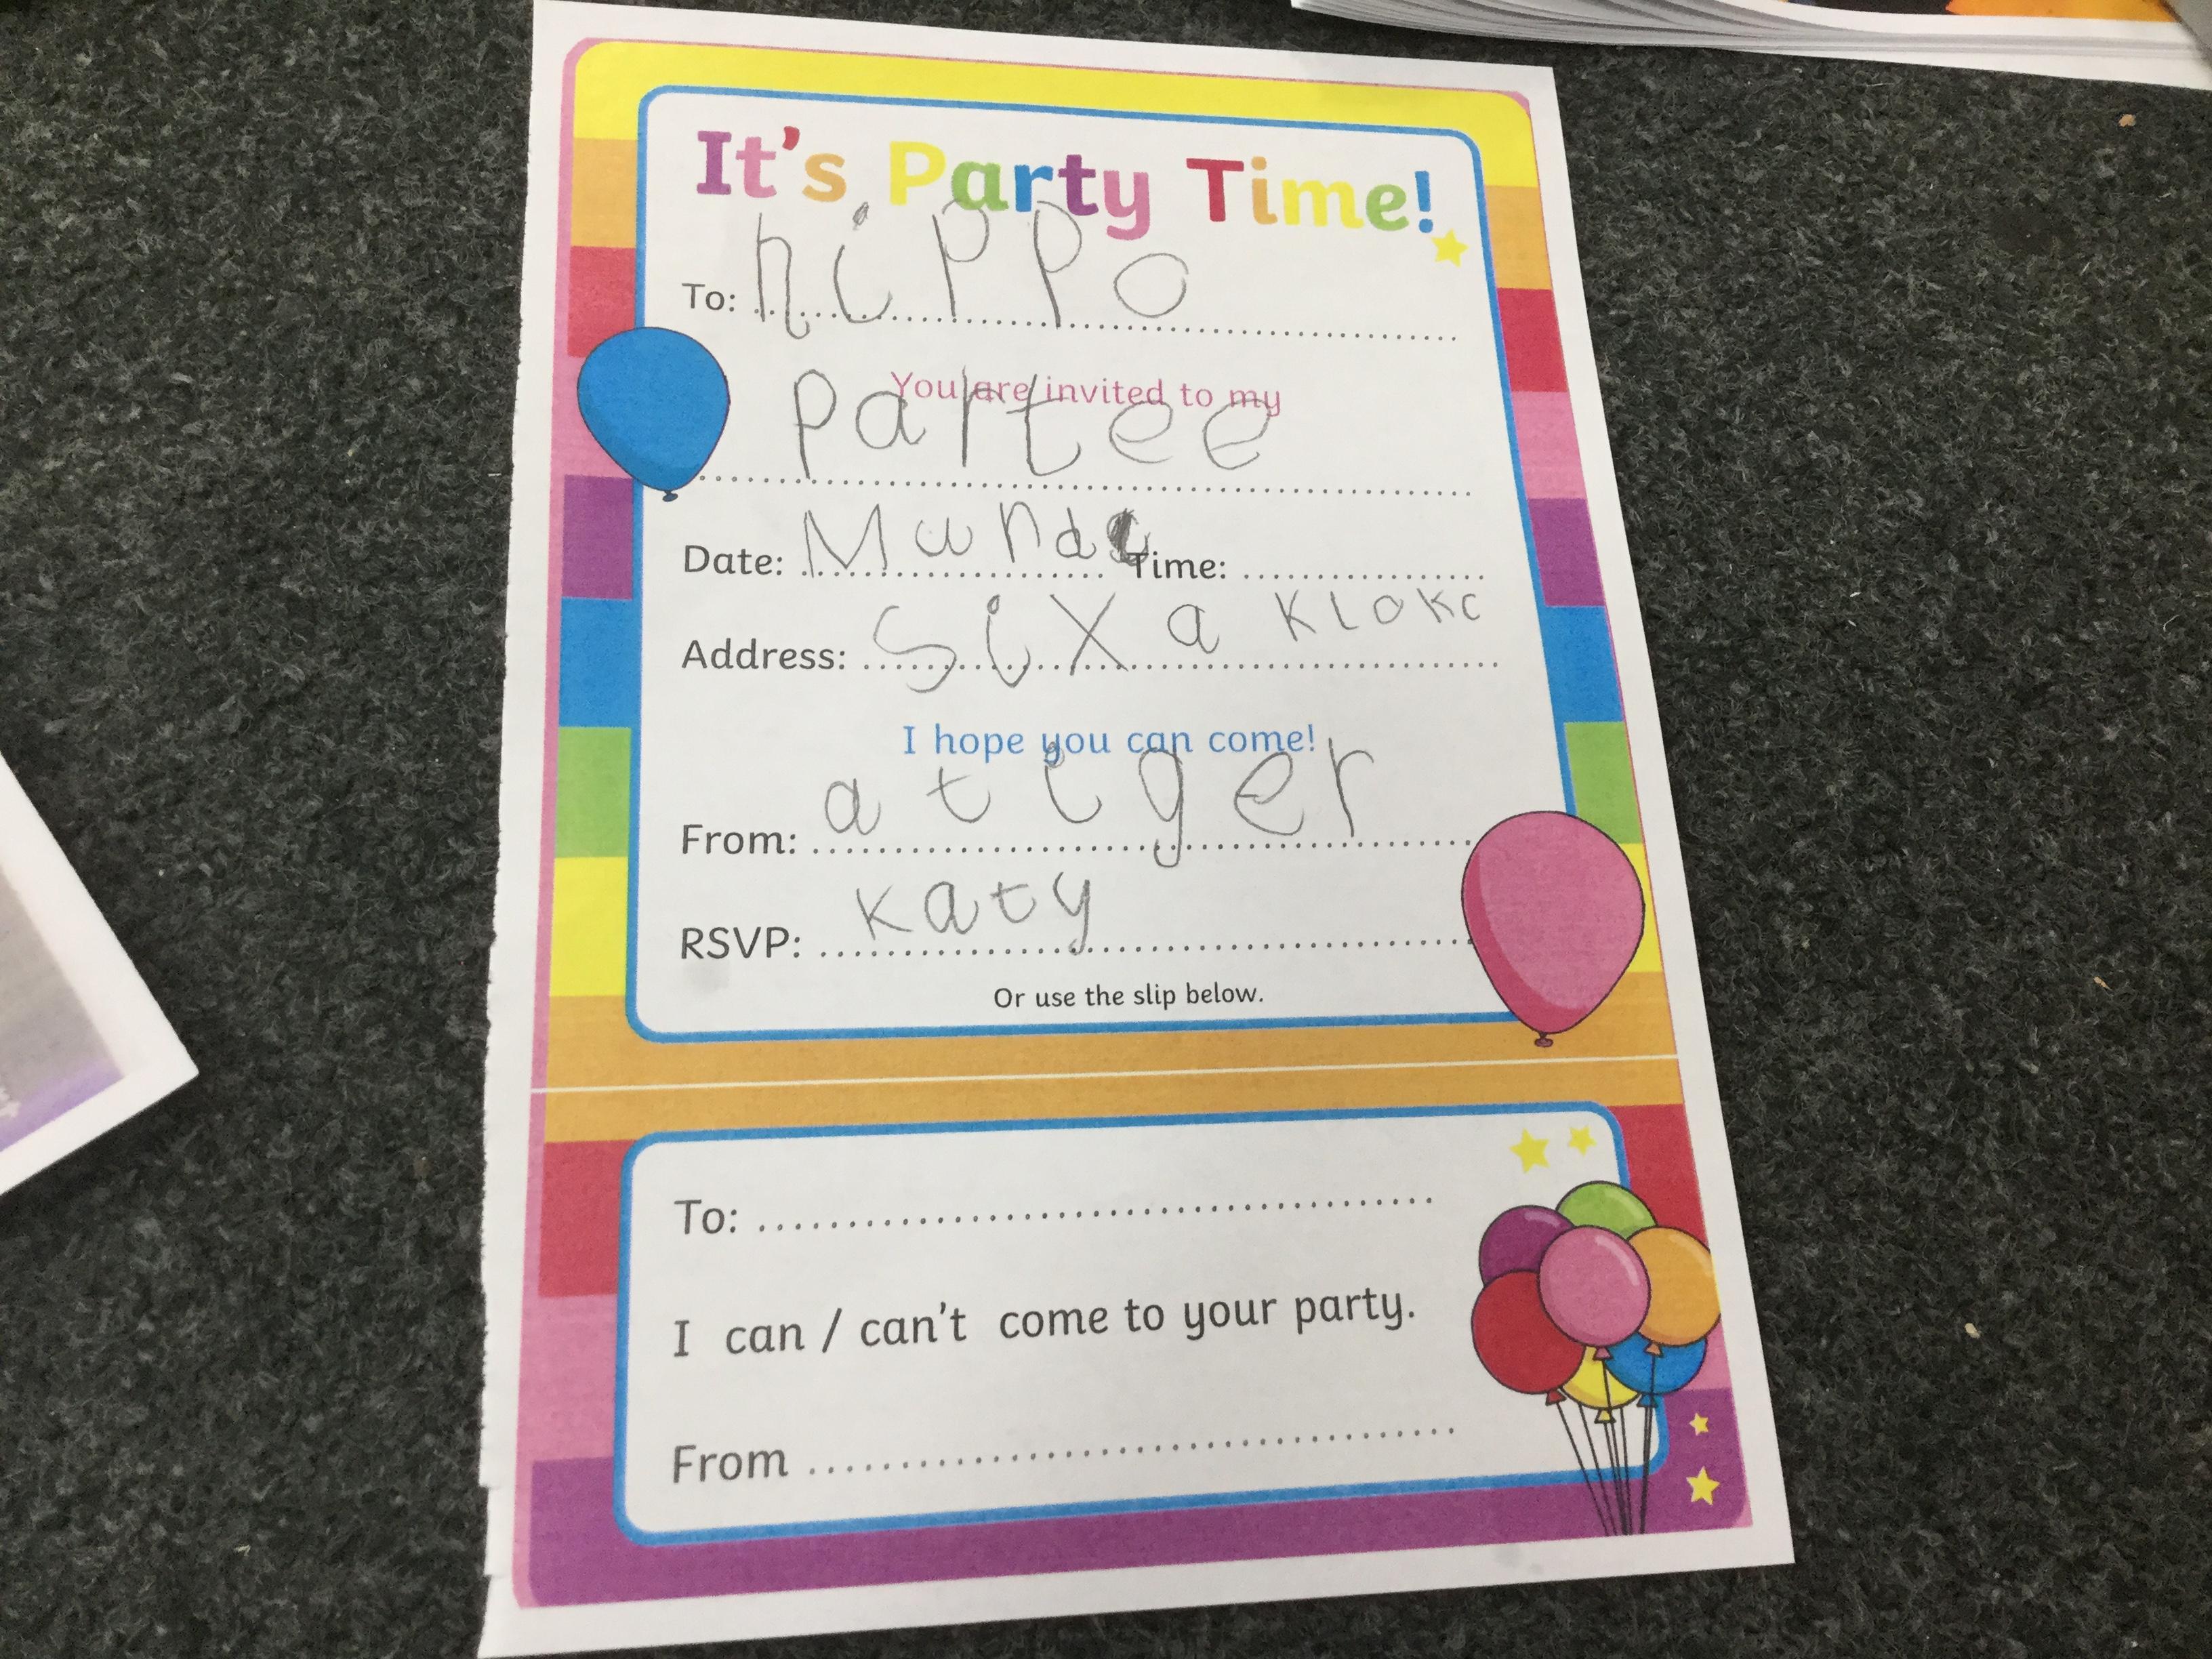 It's Party Time!
To: hippo
You are invited to my
partee
Date: Munda Time:
Address: Six a kloKc
I hope you can come!
From: a tiger
RSVP: Katy
Or use the slip below.
To:
I can / can't come to your party.
From